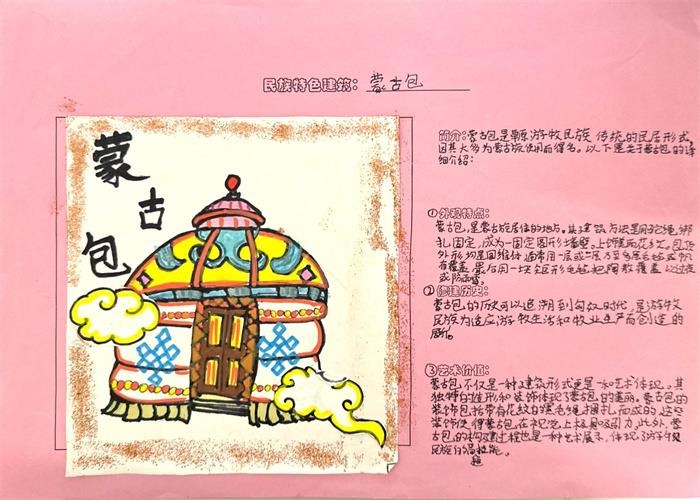 民族特色建筑：蒙古包
蒙
古
包
简介：蒙古包是草原游牧民族传统的民居形式，
因其大多为蒙古族使用而得名。以下是关于蒙古包的详
细介绍：
①外观特点：
蒙古包，是蒙古族居住的地方。其建筑方法是用
扎固定，成为一固定圆形
外形均是圆锥体 通常用一层或二层
覆盖，最后用一块
或防
②修建历史：
蒙古包，的历史可以追溯到匈奴时代，是游牧
民族为适应游牧生活和牧业生产而创造的
居所。
③艺术价值：
蒙古包，不仅是一种建筑形式更是一种艺术体现。其
独特的造形和装饰体现了蒙古包的美丽。蒙古包的
装饰包括带有花纹的 捆扎而成的，这些
装饰使得蒙古包，在视觉上极具吸引力，此外，蒙
古包，的构建过程也是一种艺术展示，体现了游牧
民族的高超